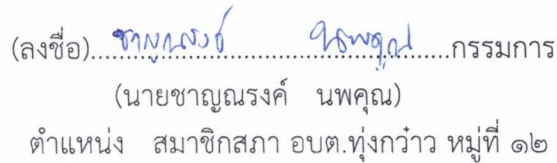 (ลงชื่อ)....ชาญณรงค์....นพคุณ....กรรมการ
(นายชาญณรงค์ นพคุณ)
ตำแหน่ง สมาชิกสภา อบต.ทุ่งกว๋าว หมู่ที่ ๑๒